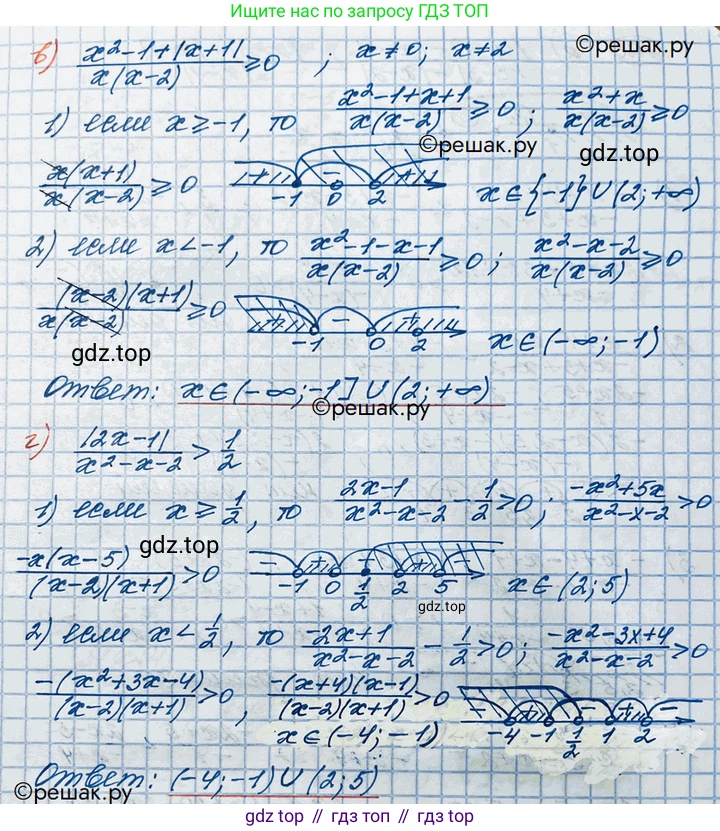 Ищите нас по запросу ГДЗ ТОП
в) (x²-1+|x+1|)/(x(x-2)) ≥ 0 ; x≠0; x≠2 ©reшак.ру
1) если x ≥ -1, то (x²-1+x+1)/(x(x-2)) ≥ 0 ; (x²+x)/(x(x-2)) ≥ 0
©reshak.ru
gdz.top
x(x+1)/(x(x-2)) ≥ 0 + - + -1 0 2 x∈{-1}∪(2;+∞)
2) если x < -1, то (x²-1-x-1)/(x(x-2)) ≥ 0 ; (x²-x-2)/(x(x-2)) ≥ 0
(x-2)(x+1)/(x(x-2)) ≥ 0 + - + -1 0 2 x∈(-∞;-1)
gdz.top
gdz.top
Ответ: x∈(-∞;-1]∪(2;+∞)
©reшак.ру
г) |2x-1|/(x²-x-2) > 1/2
1) если x ≥ 1/2, то (2x-1)/(x²-x-2) - 1/2 > 0 ; (-x²+5x)/(x²-x-2) > 0
gdz.top
-x(x-5)/((x-2)(x+1)) > 0 - + - + - -1 0 1/2 2 5 x∈(2;5)
gdz.top
2) если x < 1/2, то (-2x+1)/(x²-x-2) - 1/2 > 0 ; (-x²-3x+4)/(x²-x-2) > 0
-(x²+3x-4)/((x-2)(x+1)) > 0 , -(x+4)(x-1)/((x-2)(x+1)) > 0 - + - + - -4 -1 1/2 1 2
x∈(-4;-1)
Ответ: (-4;-1)∪(2;5)
©reшак.ру
gdz.top // гдз.топ // гдз.top